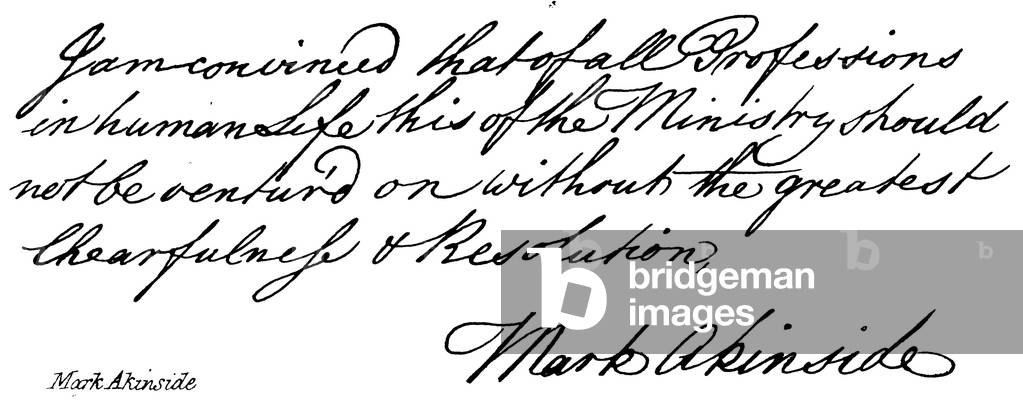 I am convinced that of all Professions
in human Life this of the Ministry should
not be ventur'd on without the greatest
Chearfulness & Resolution,
bridgeman
images
Mark Akinside
Mark Akinside